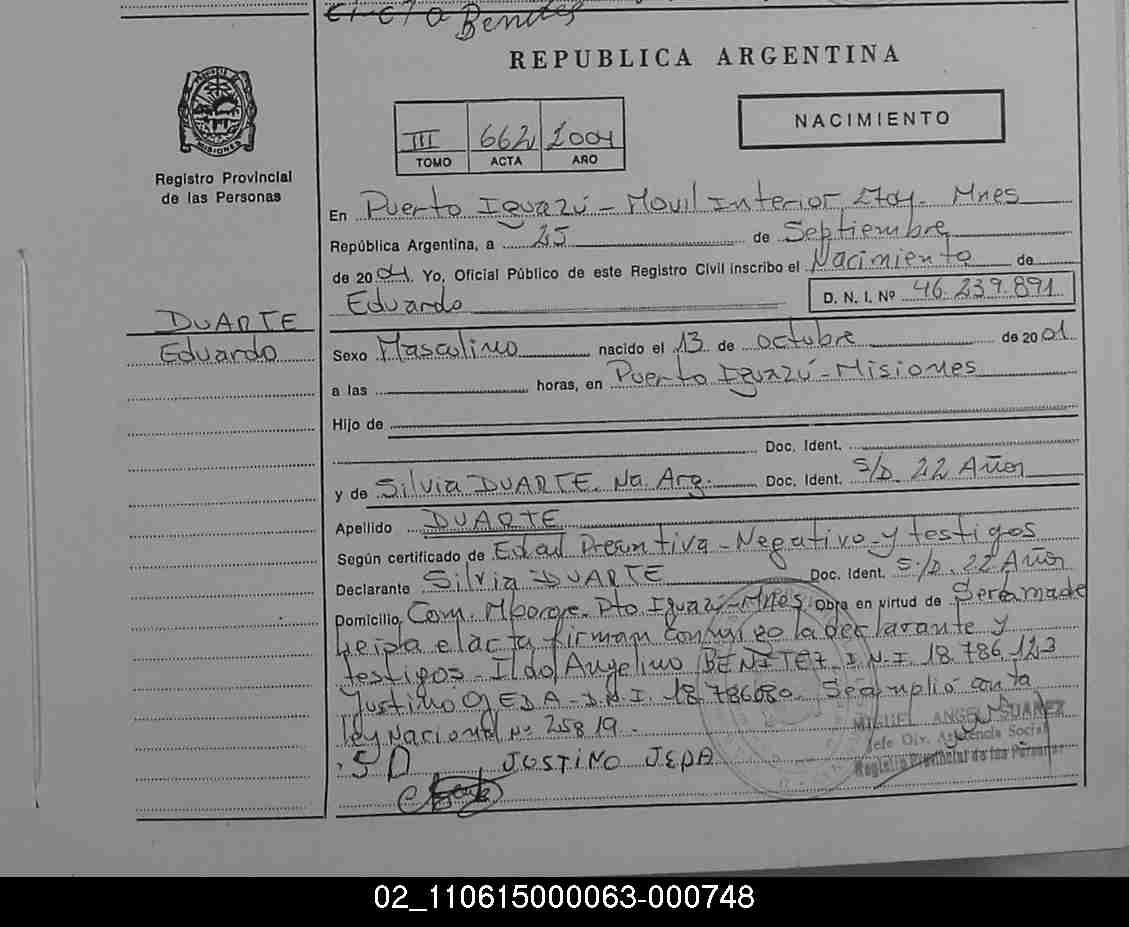 Benitez
REPUBLICA ARGENTINA
MISIONES
Registro Provincial
de las Personas
III 662 2004
TOMO ACTA AÑO
NACIMIENTO
En Puerto Iguazú - Movil Interior, Mnes
República Argentina, a 25 de Septiembre
de 2004. Yo, Oficial Público de este Registro Civil inscribo el Nacimiento de
Eduardo D. N. I. Nº 46.239.891
DUARTE
Eduardo
Sexo Masculino nacido el 13 de octubre de 2001
a las horas, en Puerto Iguazú - Misiones
Hijo de
Doc. Ident.
y de Silvia DUARTE. Na. Arg. Doc. Ident. S/D. 22 Años
Apellido DUARTE
Según certificado de Edad Presuntiva - Negativo - y testigos
Declarante Silvia DUARTE Doc. Ident. S/D. 22 Años
Domicilio Com. Mborore. Pto. Iguazú - Mnes. Obra en virtud de Ser la madre
leida el acta firman conmigo la declarante y
testigos - Ildo Angelino BENITEZ - D.N.I. 18.786.123
Justino OJEDA - D.N.I. 18.786080. Se amplió con la
ley Nacional Nº 25819.
SD JUSTINO JEDA
MIGUEL ANGEL SUAREZ
Jefe Div. Asistencia Social
Registro Provincial de las Personas
02_110615000063-000748